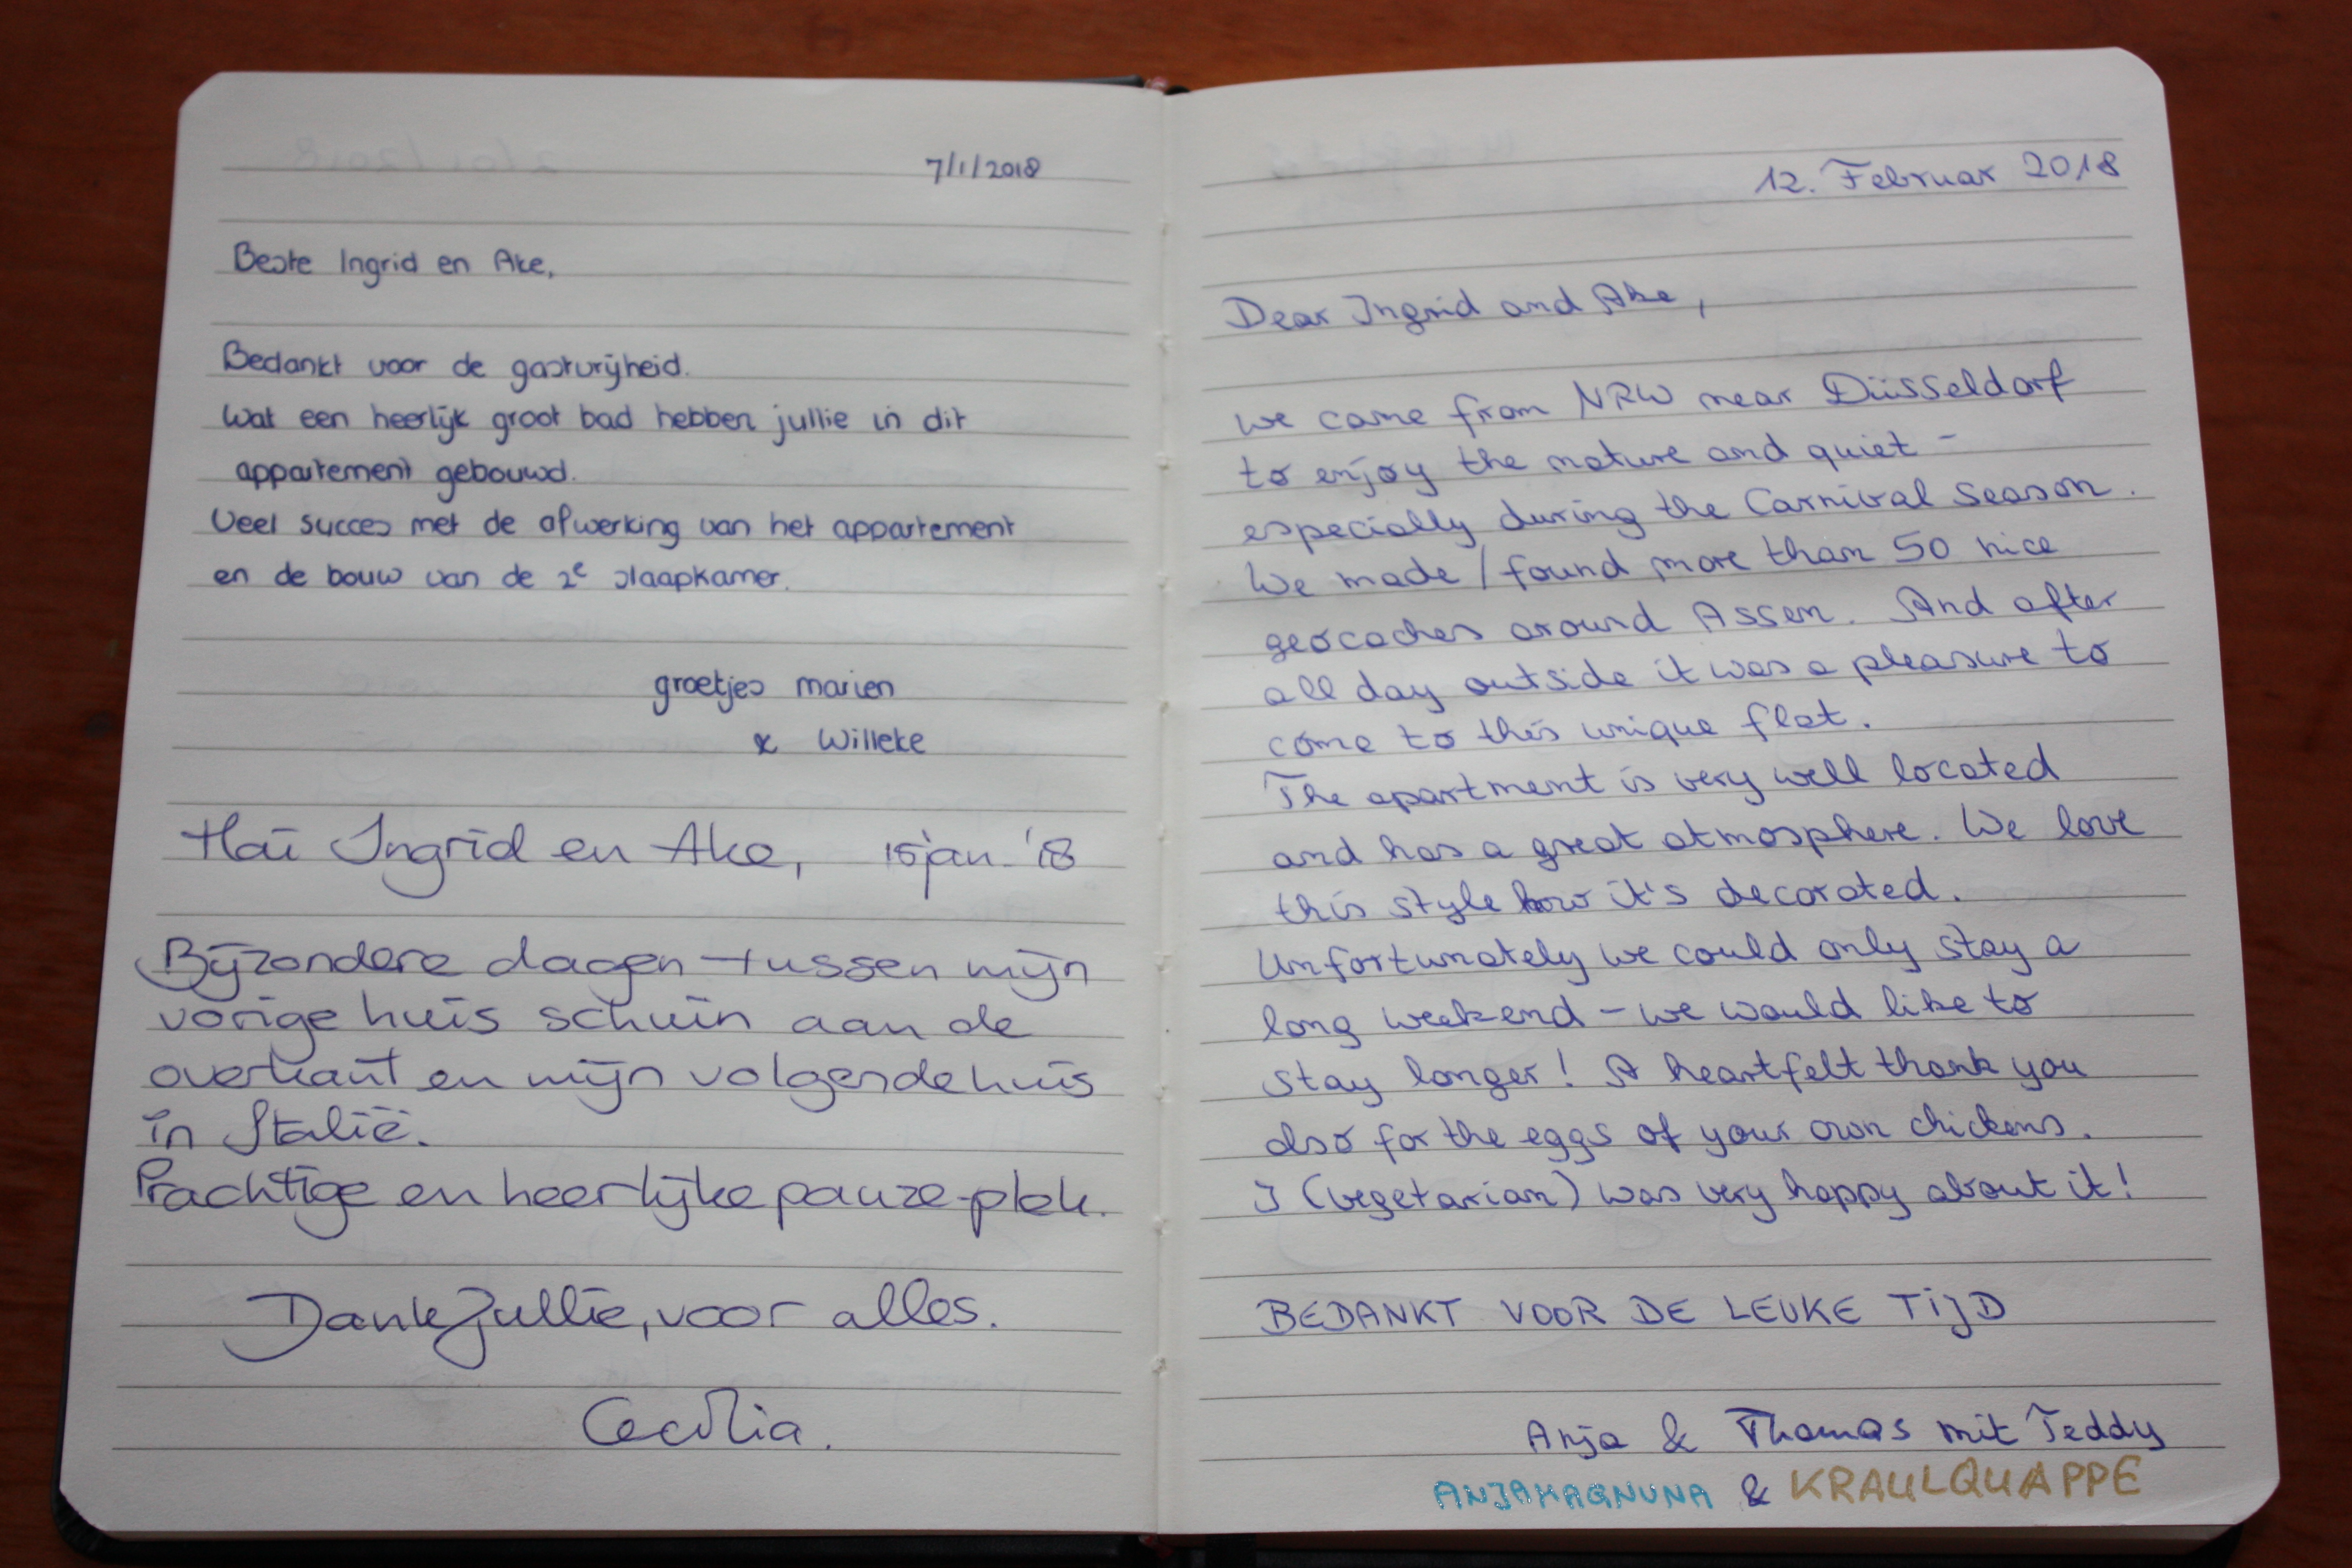 7/1/2018
Beste Ingrid en Ake,
Bedankt voor de gastvrijheid.
Wat een heerlijk groot bad hebben jullie in dit
appartement gebouwd.
Veel succes met de afwerking van het appartement
en de bouw van de 2e slaapkamer.
groetjes marien
& Willeke
Hai Ingrid en Ake, 15 jan. '18
Bijzondere dagen tussen mijn
vorige huis schuin aan de
overkant en mijn volgende huis
in Italië.
Prachtige en heerlijke pauze-plek.
Dank jullie, voor alles.
Cecilia.
12. Februar 2018
Dear Ingrid and Ake,
we came from NRW near Düsseldorf
to enjoy the nature and quiet -
especially during the Carnival season.
We made / found more than 50 nice
geocaches around Assen. And after
all day outside it was a pleasure to
come to this unique flat.
The apartment is very well located
and has a great atmosphere. We love
this style how it's decorated.
Unfortunately we could only stay a
long weekend - we would like to
stay longer! A heartfelt thank you
also for the eggs of your own chickens.
I (vegetarian) was very happy about it!
BEDANKT VOOR DE LEUKE TIJD
Anja & Thomas mit Teddy
& KRAULQUAPPE